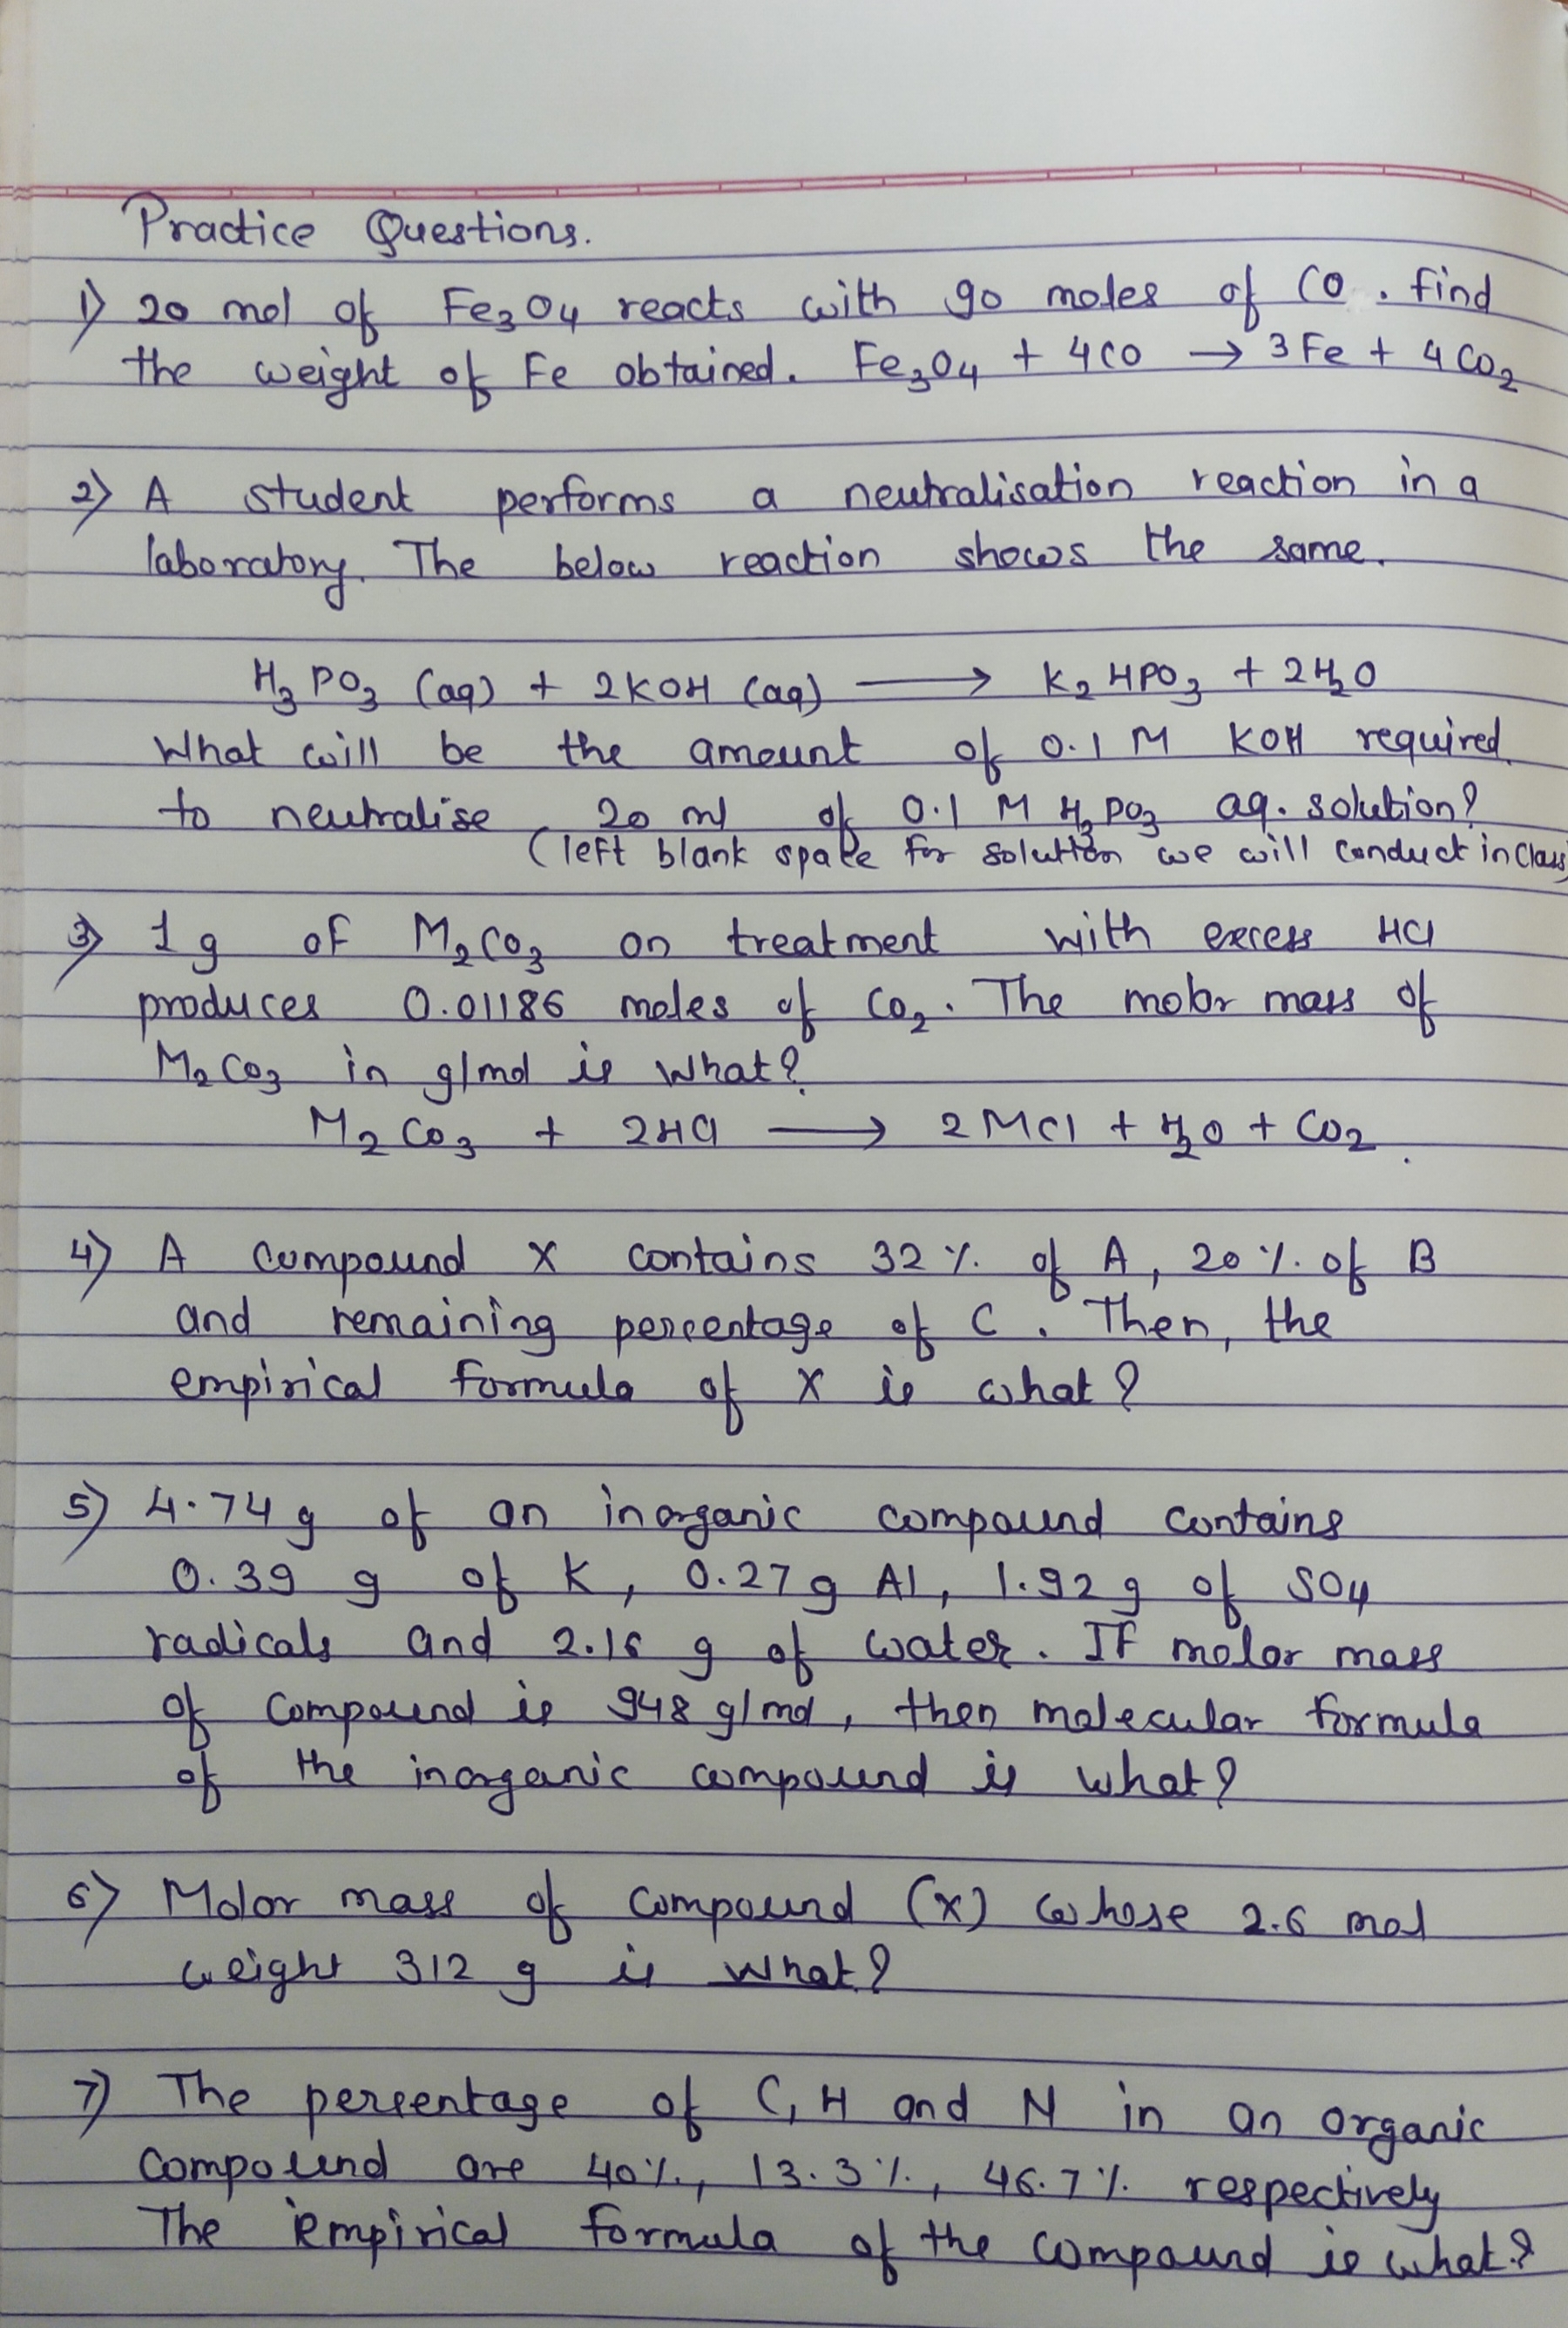 Practice Questions.
1) 20 mol of Fe₃O₄ reacts with 90 moles of CO. find
the weight of Fe obtained. Fe₃O₄ + 4CO → 3Fe + 4CO₂
2) A student performs a neutralisation reaction in a
laboratory. The below reaction shows the same.
H₃PO₃ (aq) + 2KOH (aq) → K₂HPO₃ + 2H₂O
What will be the amount of 0.1 M KOH required
to neutralise 20 ml of 0.1 M H₃PO₃ aq. solution?
(left blank space for solution we will conduct in class)
3) 1g of M₂CO₃ on treatment with excess HCl
produces 0.01186 moles of CO₂. The molar mass of
M₂CO₃ in g/mol is what?
M₂CO₃ + 2HCl → 2MCl + H₂O + CO₂.
4) A compound X contains 32% of A, 20% of B
and remaining percentage of C. Then, the
empirical formula of X is what?
5) 4.74 g of an inorganic compound contains
0.39 g of K, 0.27g Al, 1.92g of SO₄
radicals and 2.16 g of water. If molar mass
of compound is 948 g/mol, then molecular formula
of the inorganic compound is what?
6) Molar mass of compound (X) whose 2.6 mol
weight 312 g is what?
7) The percentage of C, H and N in an organic
compound are 40%, 13.3%, 46.7% respectively
The empirical formula of the compound is what?